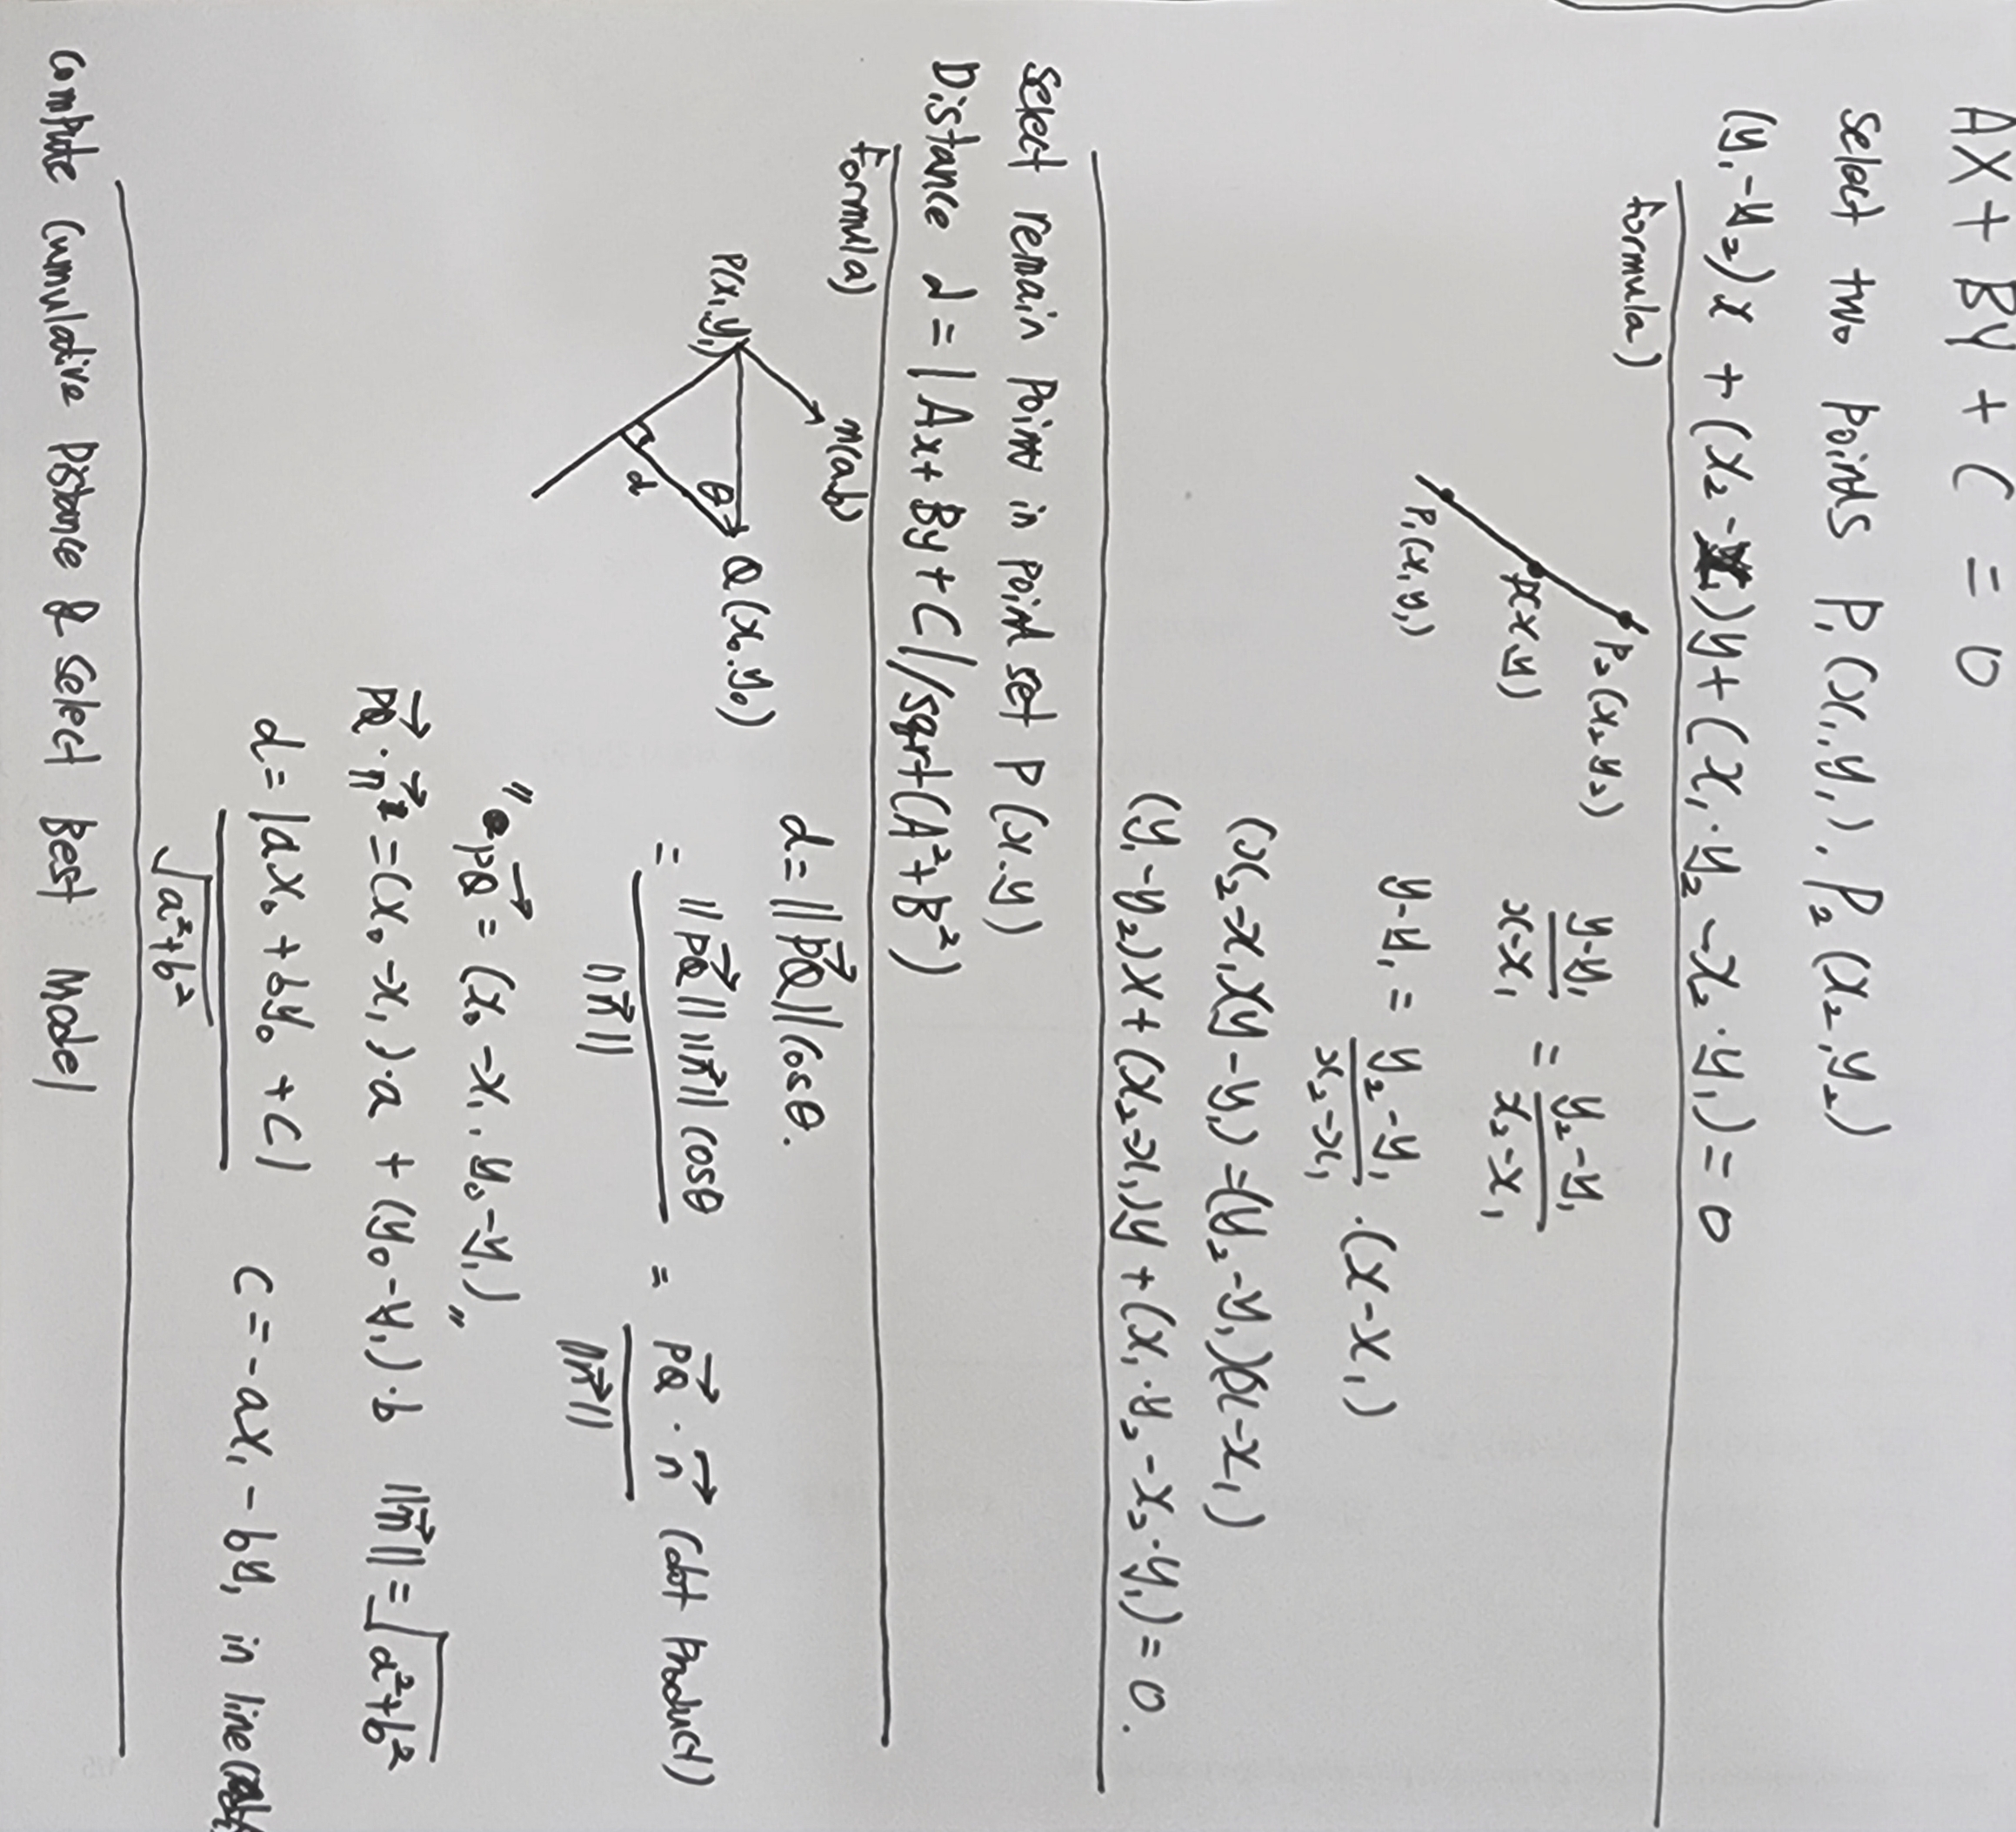 AX + BY + C = 0
Select two points P₁(x₁,y₁), P₂(x₂,y₂)
(y₁-y₂)x + (x₂-x₁)y+(x₁·y₂-x₂·y₁)=0
formula)
P₂(x₂ y₂)
P(x.y)
P₁(x₁ y₁)
(y-y₁)/(x-x₁) = (y₂-y₁)/(x₂-x₁)
y-y₁ = (y₂-y₁)/(x₂-x₁) ·(x-x₁)
(x₂-x₁)(y-y₁)=(y₂-y₁)(x-x₁)
(y₁-y₂)x+(x₂-x₁)y+(x₁·y₂-x₂·y₁)=0.
Select remain Point in point set P(x.y)
Distance d=|Ax+By+C|/sqrt(A²+B²)
Formula)
n(a.b)
P(x₁.y₁)
Q(x₀.y₀)
θ
d
d=||PQ⃗||cosθ.
= ||PQ⃗|| ||n⃗|| cosθ / ||n⃗|| = PQ⃗ · n⃗ / ||n⃗|| (dot Product)
"PQ⃗ = (x₀-x₁, y₀-y₁)"
PQ⃗·n⃗ =(x₀-x₁)·a + (y₀-y₁)·b ||n⃗||=√(a²+b²)
d=|ax₀+by₀+C| / √(a²+b²) C=-ax₁-by₁ in line
Compute Cumulative Distance & Select Best Model